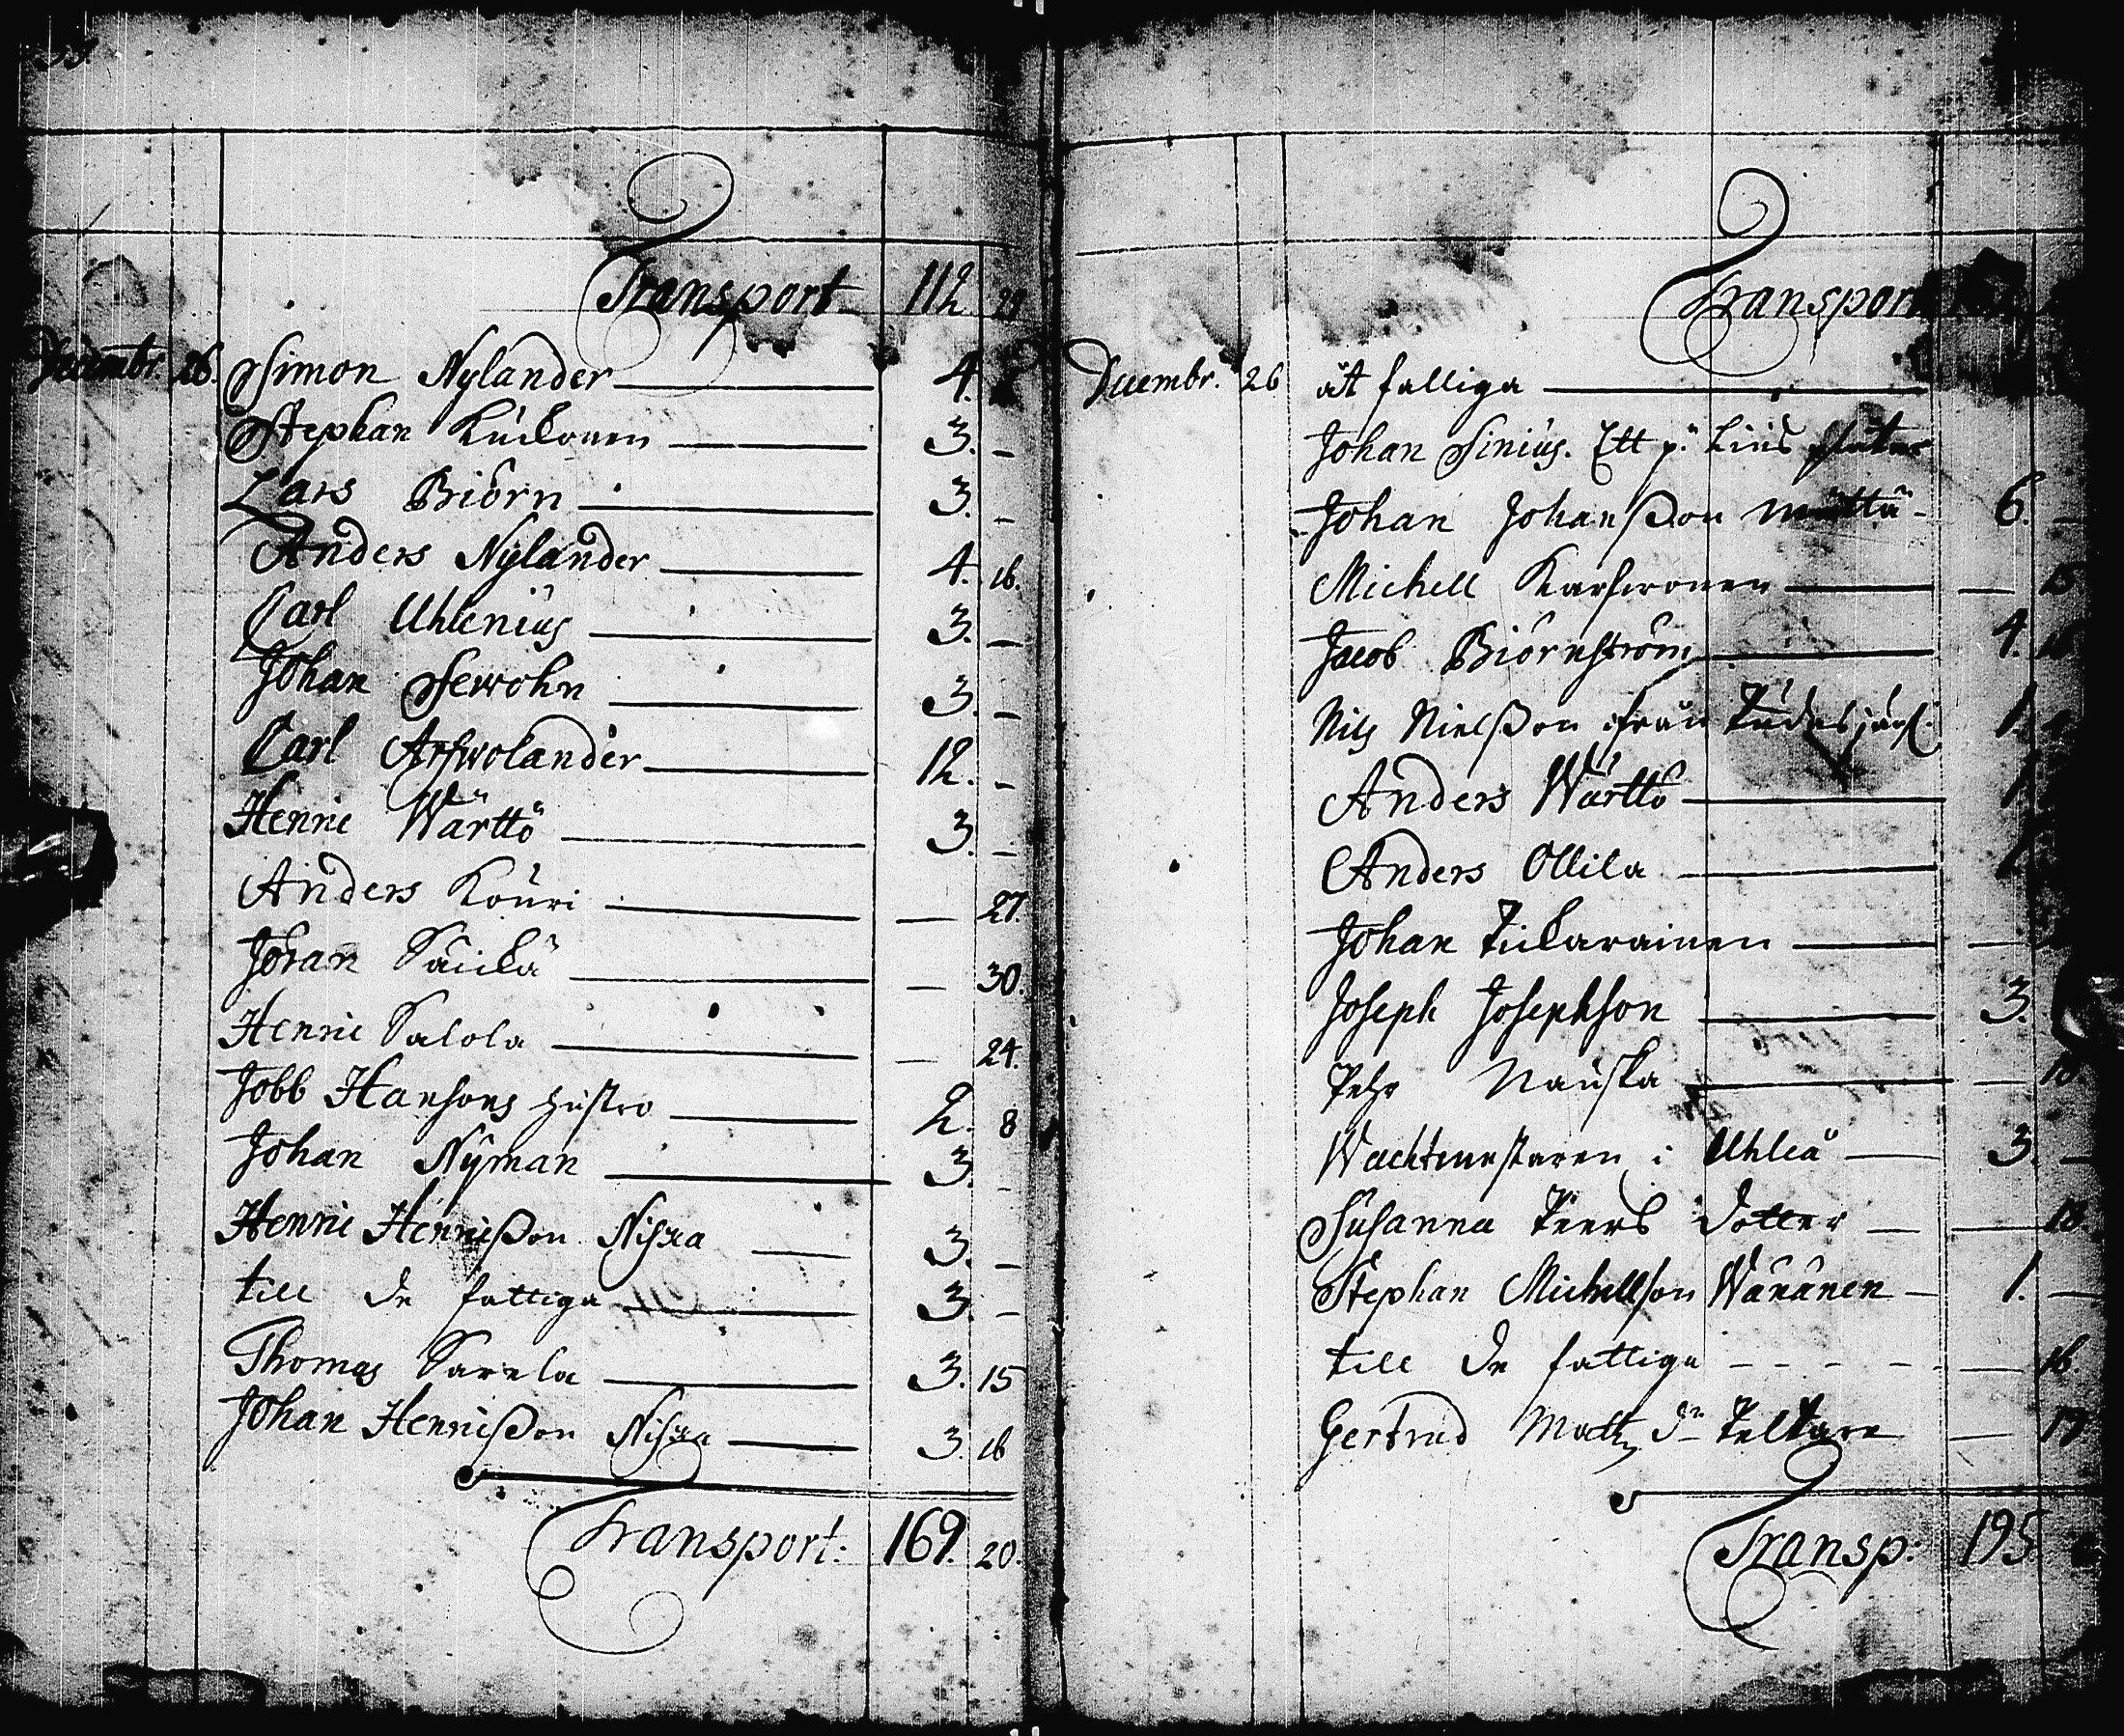 Transport 112 29
Decembr. 26. Simon Nylander 4.
Stephan Kuckonen 3. –
Lars Biörn 3. –
Anders Nylander 4. 16.
Carl Uhlenius 3. –
Johan Sewohn 3. –
Carl Arfwolander 12. –
Henric Wärttö 3. –
Anders Kouri — 27.
Johan — 30.
Henric Salola — 24.
Jobb Hansons hustro 2. 8
Johan Nyman 3. –
Henric Henrißon Niska 3. –
till de fattiga 3. –
Thomas Sarela 3. 15
Johan Henrißon Niska 3. 16
Transport: 169. 20.
Transport
Decembr. 26 åt falliga
Johan Sinius. Ett p:
Johan Johanßon 6. –
Michell — 15
Jacob Biörnström 4. 16
Nils Nielßon från 1.
Anders Wärttö 1.
Anders Ollila 1.
Johan Tickarainen —
Joseph Josephson 3.
Pehr Nauska — 18
Wachtmestaren i Uhleå 3. –
Susanna Peers dotter — 18
Stephan Michellson Wänänen 1. –
till de fattiga — 16.
Gertrud Matts dr — 17
Transp: 195